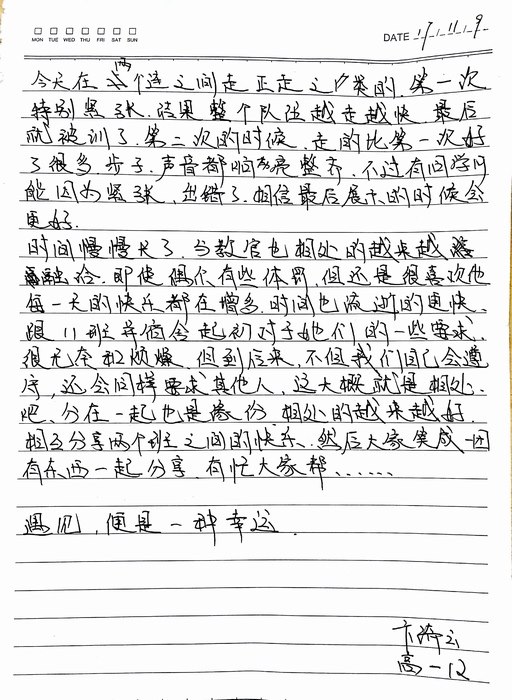 MON TUE WED THU FRI SAT SUN
DATE 17.11.9
今天在两个连之间走正走之尸类的.第一次
特别紧张.结果整个队伍越走越快 最后
就被训了.第二次的时候.走的比第一次好
了很多.步子.声音都响亮整齐.不过有同学可
能因为紧张,出错了.相信最后展示的时候会
更好.
时间慢慢长了 与教官也相处的越来越
融洽.即使偶尔有些体罚,但还是很喜欢他
每一天的快乐都在增多.时间也流逝的更快.
跟11班并宿舍起初对于她们的一些要求.
很无奈和烦燥.但到后来,不但我们自己会遵
序,还会同样要求其他人,这大概就是相处.
吧.分在一起也是缘份 相处的越来越好.
相互分享两个班之间的快乐.然后大家笑成一团
有东西一起分享.有忙大家帮......
遇见,便是一种幸运.
卞
高一12